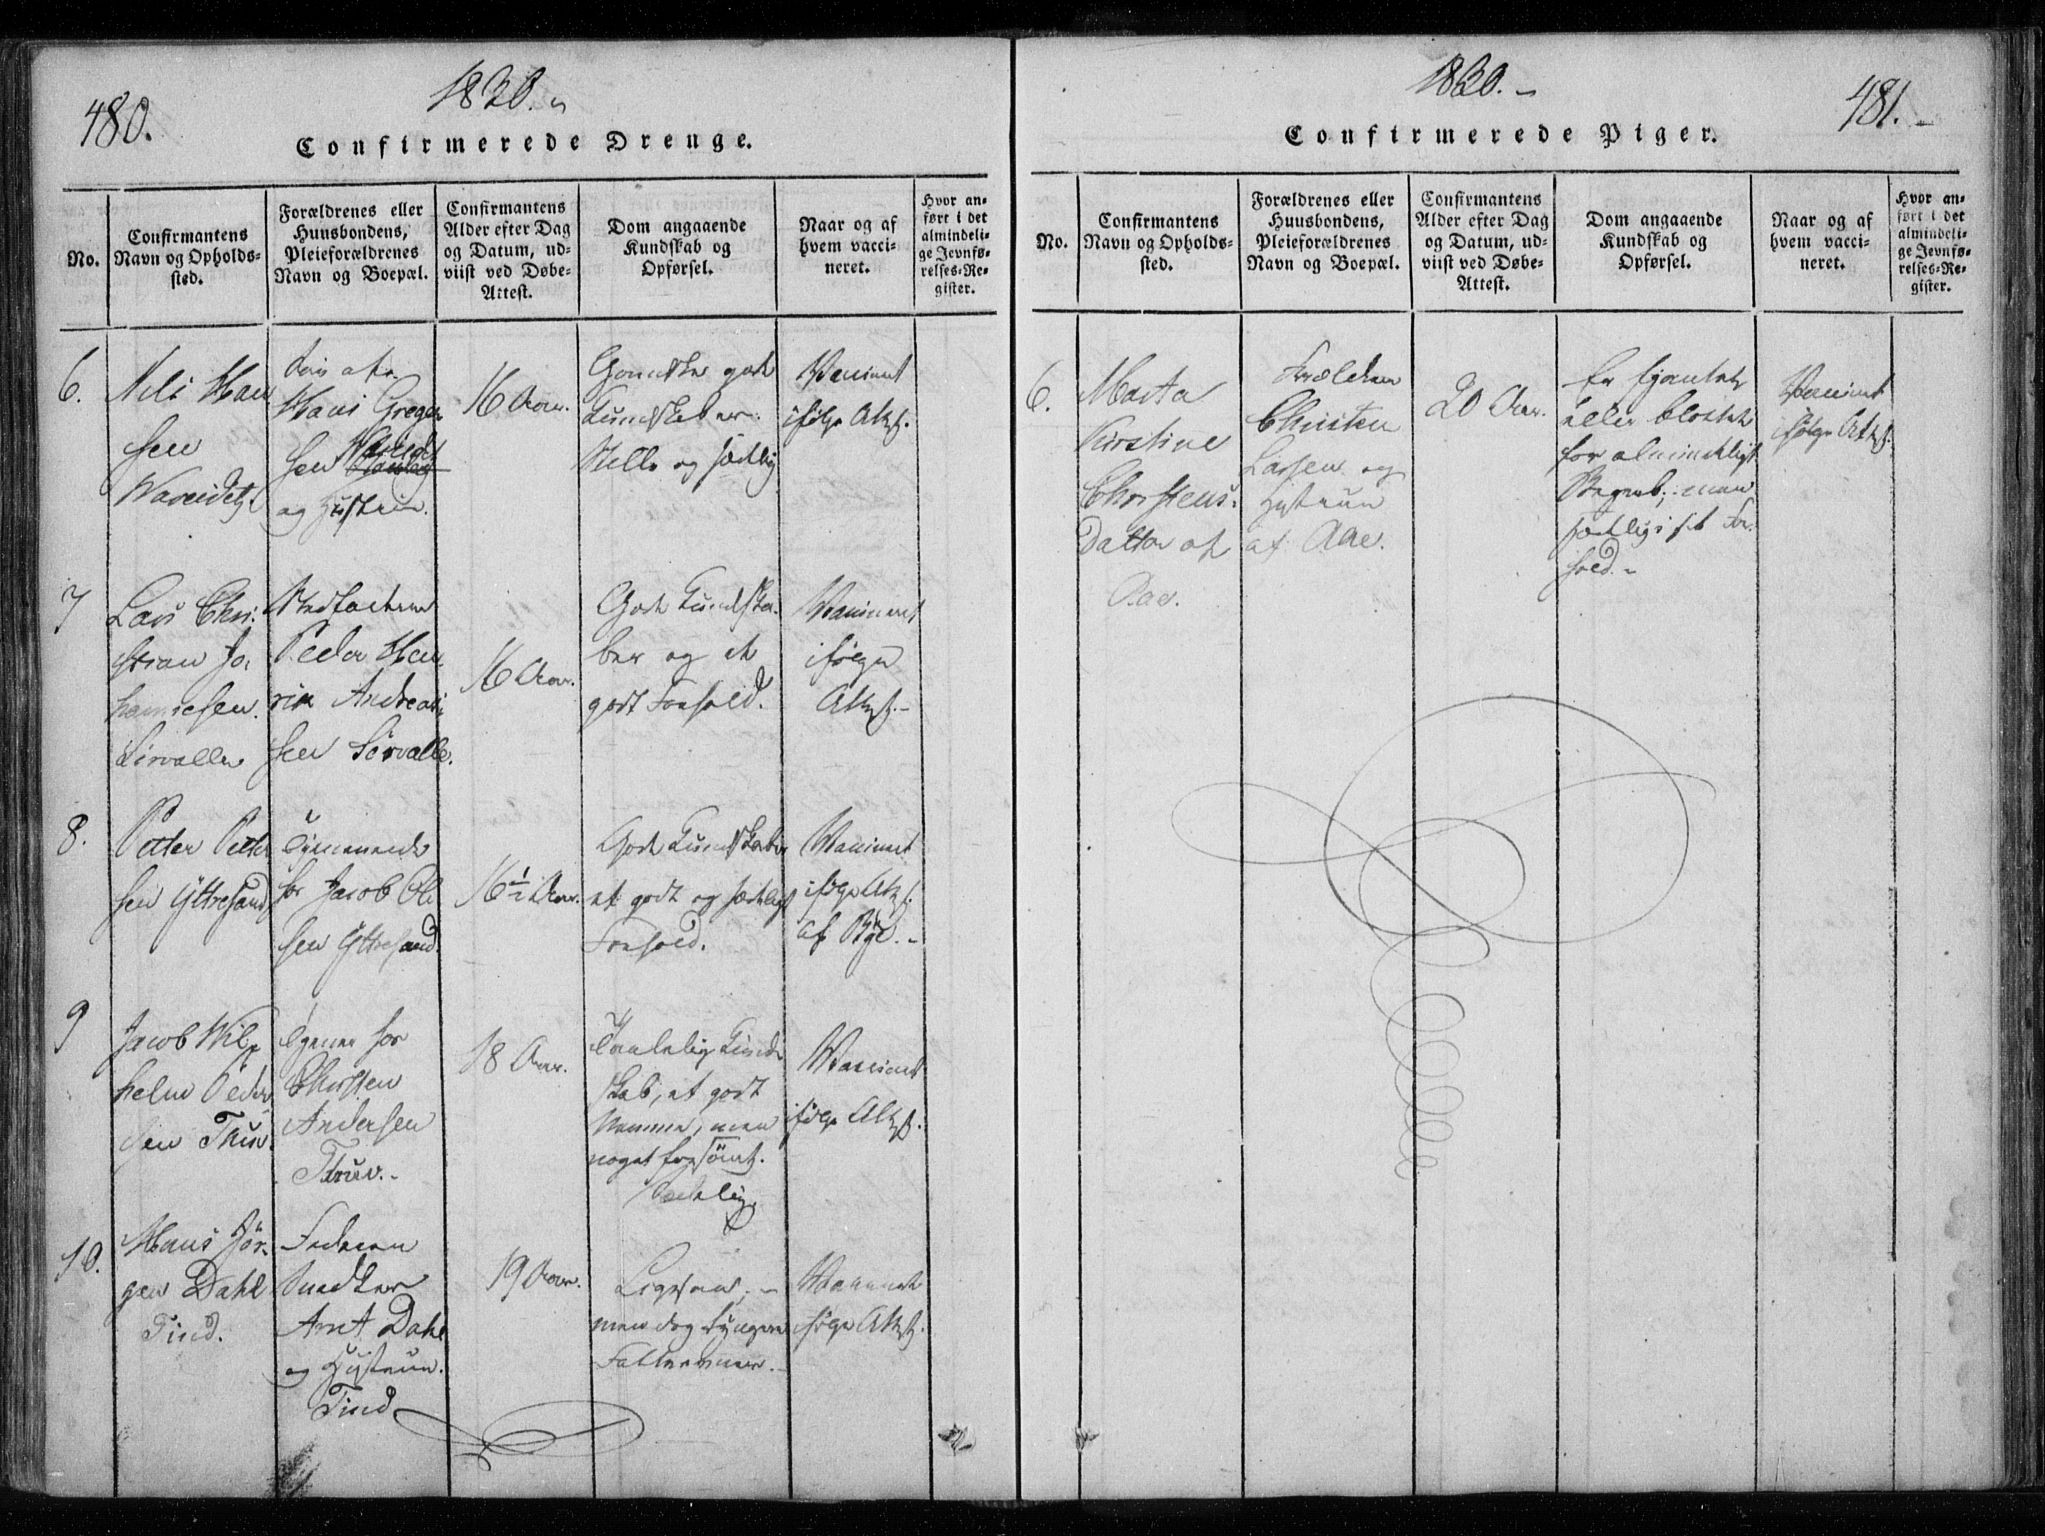 480.
1830.
Confirmerede Drenge.
No.
Confirmantens
Navn og Opholds-
sted.
Forældrenes eller
Huusbondens,
Pleieforældrenes
Navn og Boepæl.
Confirmantens
Alder efter Dag
og Datum, ud-
viist ved Døbe-
Attest.
Dom angaaende
Kundskab og
Opførsel.
Naar og af
hvem vacci-
neret.
Hvor an-
ført i det
almindeli-
ge Jevnfø-
relses-Re-
gister.
6.
Nils Han
sen
Hans Greger
sen
og Hustrue.
16 Aar.
Ganske gode
Kundskaber.
Stille og sædelig
Vaccineret
ifølge Attest.
7
Lars Chri-
stian Jo-
hannesen.
Sørvalle
Stedfaderen
Peder Hen
rik Andreas
sen Sørvalle.
16 Aar.
Gode Kundska-
ber og et
godt Forhold.
Vaccineret
ifølge
Attest.-
8.
Petter Petter
sen Yttresand
Tjenende
for Jacob Ole
sen Yttresand.
16½ Aar.
Gode Kundskaber
et godt og sædeligt
Forhold.
Vaccineret
ifølge Attest
af Bye.-
9
Jacob Wil-
helm Peder
sen
Tjener hos
Christen
Andersen
18 Aar.
Taalelig Kund-
skab, et godt
Nemme, men
noget forsömt.
Sædelig
Vaccineret
ifølge Attest.
10.
Hans Jör-
gen Dahl
Tind.
Faderen
Snedker
Arnt Dahl
og Hustrue.
Tind
19 Aar.
Ligesaa, -
men dog
Vaccineret
ifølge Attest.
1830.-
481.-
Confirmerede Piger.
No.
Confirmantens
Navn og Opholds-
sted.
Forældrenes eller
Huusbondens,
Pleieforældrenes
Navn og Boepæl.
Confirmantens
Alder efter Dag
og Datum, ud-
viist ved Døbe-
Attest.
Dom angaaende
Kundskab og
Opførsel.
Naar og af
hvem vacci-
neret.
Hvor an-
ført i det
almindeli-
ge Jevnfø-
relses-Re-
gister.
6.
Marta
Kirstine
Christens-
Datter af
Aae.
Forældrene
Christen
Larsen og
Hustrue
af Aae.
20 Aar.
Er
eller blottet
for almindeligt
Begreb; men
sædelig i sit For-
hold.-
Vaccineret
ifølge Attest.